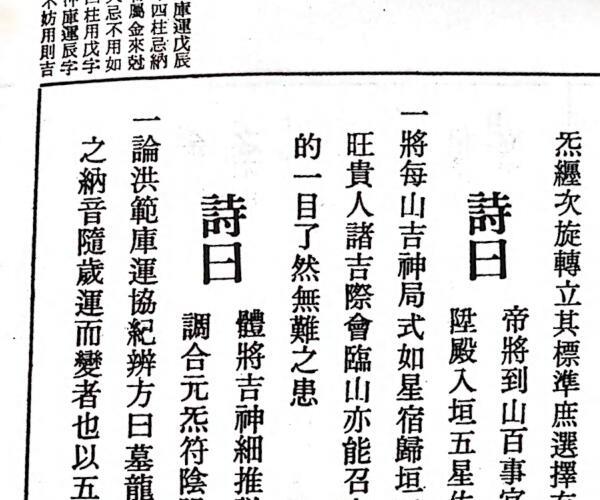 庫運戊辰
四柱忌納
屬金來尅
忌不用如
柱用戊字
庫運辰字
妨用則吉
炁纒次旋轉立其標準庶選擇有
詩曰
帝將到山百事宜
陞殿入垣五星佐
一將每山吉神局式如星宿歸垣
旺貴人諸吉際會臨山亦能召
的一目了然無難之患
詩曰
體將吉神細推
調合元炁符陰陽
一論洪範庫運協紀辨方曰墓龍
之納音隨歲運而變者也以五